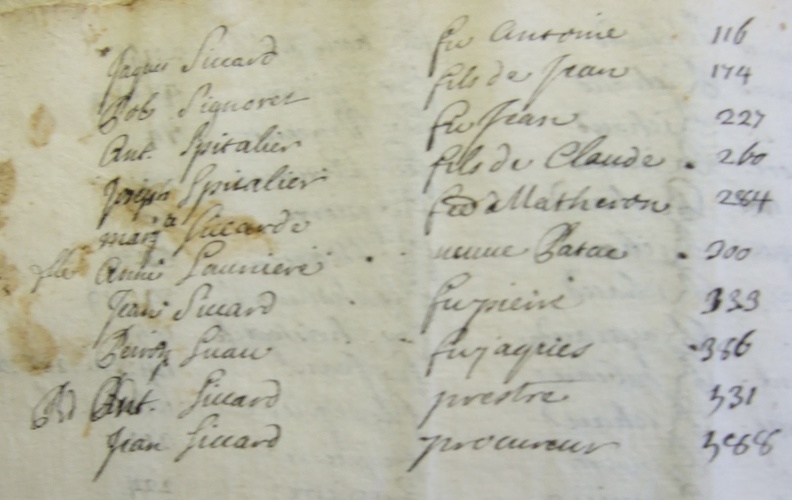 Jaques Sicard fu Antoine 116
Bob Signoret fils de Jean 174
Ant. Spitalier fu Jean 227
Joseph Spitalier fils de Claude . 260
Sicarde Matheron 284
Anne veuve 300
Jean Sicard fu pierre 333
fu jaques 386
Ant. Sicard prestre 531
Jean Sicard procureur 588